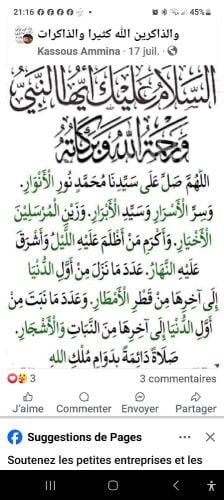 21:16
45%
والذاكرين الله كثيرا والذاكرات
Kassous Ammina · 17 juil. ·
السلام عليك أيها النبي
ورحمة الله وبركاته
اللهم صل على سيدنا محمد نور الأنوار.
وسر الأسرار وسيد الأبرار. وزين المرسلين
الأخيار. وأكرم من أظلم عليه الليل وأشرق
عليه النهار. عدد ما نزل من أول الدنيا
إلى آخرها من قطر الأمطار. وعدد ما نبت من
أول الدنيا إلى آخرها من النبات والأشجار.
صلاة دائمة بدوام ملك الله
3
3 commentaires
J'aime
Commenter
Envoyer
Partager
Suggestions de Pages
Soutenez les petites entreprises et les